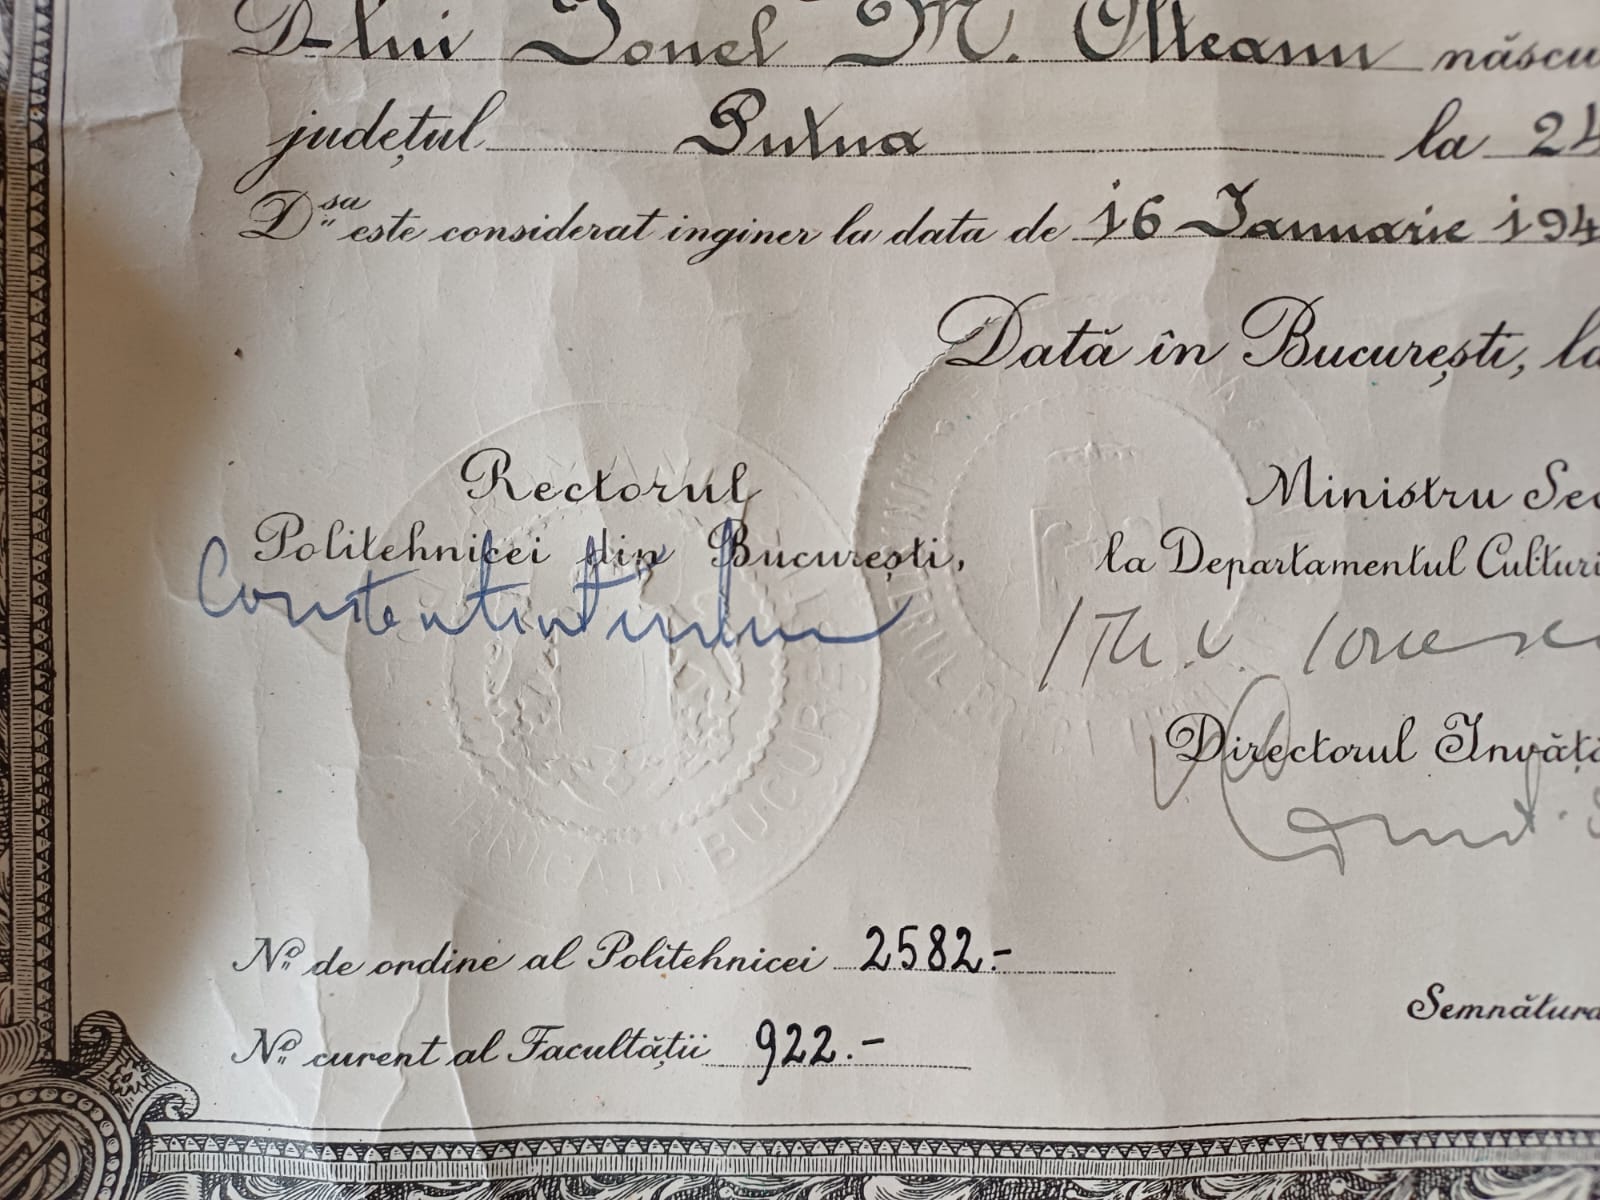 D-lui Ionel M. Olteanu născu
județul Putna la 24
Dsa este considerat inginer la data de 16 Ianuarie 194
Dată în București, la
Rectorul
Politehnicei din București,
Ministru Sec
la Departamentul Culturi
Directorul Învăță
BUCUREȘTI
No de ordine al Politehnicei 2582.-
No curent al Facultății 922.-
Semnătura